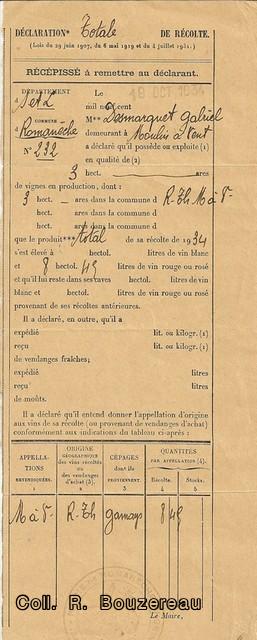 DÉCLARATION* Totale DE RÉCOLTE.
(Lois du 29 juin 1907, du 6 mai 1919 et du 4 juillet 1931.)
RÉCÉPISSÉ à remettre au déclarant.
DÉPARTEMENT Le 19 OCT 1934
mil neuf cent
COMMUNE M** Desmarquet Gabriel
Romanèche demeurant à Moulin à Vent
N° 232 a déclaré qu'il possède ou exploite (1)
en qualité de (2)
3 hect. ares
de vignes en production, dont :
3 hect. - ares dans la commune d R-Th. M à V-
hect. ares dans la commune d
hect. ares dans la commune d
que le produit*** total de sa récolte de 1934
s'est élevé à hectol. litres de vin blanc
et 8 hectol. 45 litres de vin rouge ou rosé
et qu'il lui reste dans ses caves hectol. litres de vin
blanc et hectol. litres de vin rouge ou rosé
provenant de ses récoltes antérieures.
Il a déclaré, en outre, qu'il a
expédié lit. ou kilogr. (1)
reçu lit. ou kilogr. (1)
de vendanges fraîches;
expédié litres
reçu litres
de moûts.
Il a déclaré qu'il entend donner l'appellation d'origine
aux vins de sa récolte (ou provenant de vendanges d'achat)
conformément aux indications du tableau ci-après :
APPELLATIONS REVENDIQUÉES. 1
ORIGINE GÉOGRAPHIQUE des vins récoltés ou des vendanges d'achat (3). 2
CÉPAGES dont ils PROVIENNENT. 3
QUANTITÉS PAR APPELLATION (4).
Récolte. 4 Stocks. 5
M à V- R-Th gamays 8 45
Coll. R. Bouzereau
Le Maire,